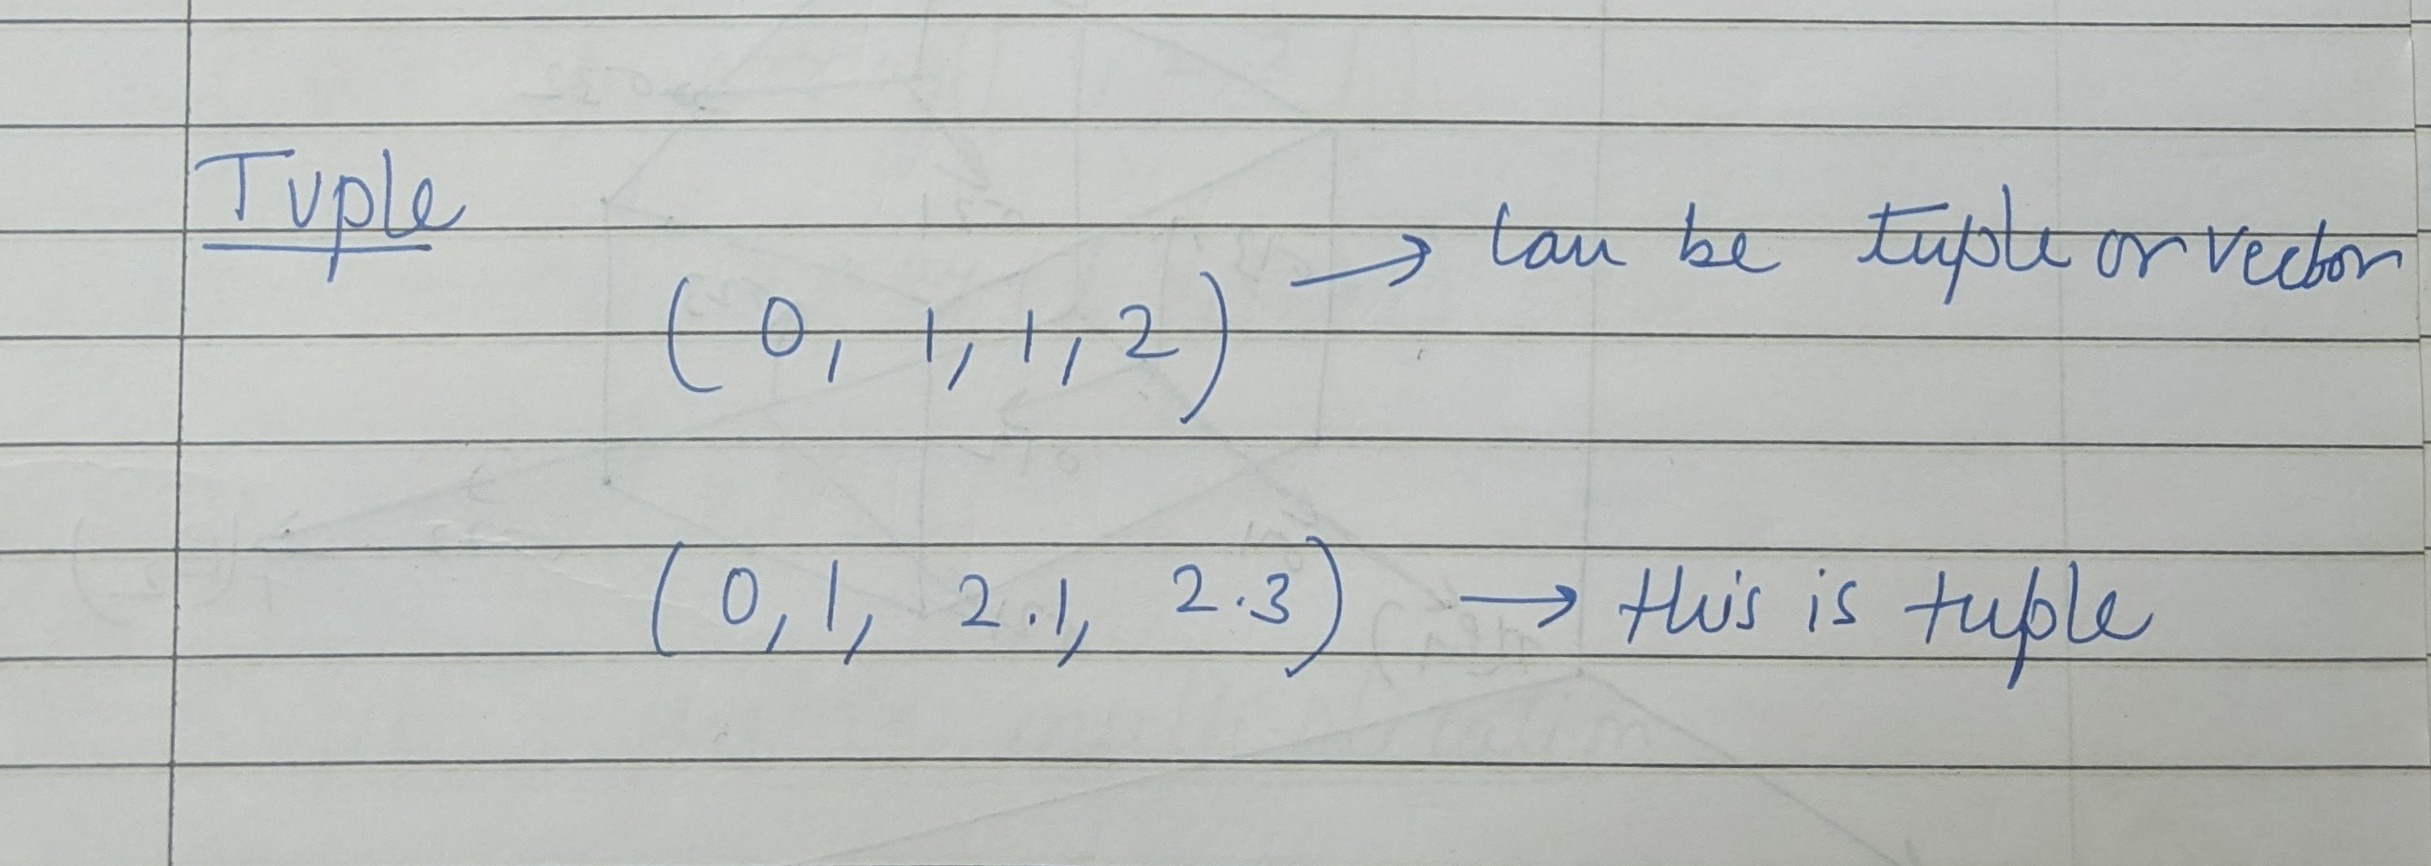 Tuple
(0, 1, 1, 2) → Can be tuple or vector
(0, 1, 2.1, 2.3) → this is tuple